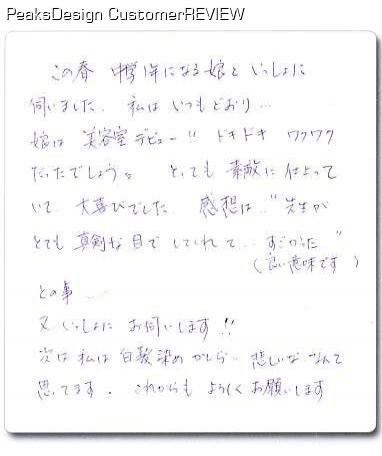 PeaksDesign CustomerREVIEW
この春 中学1年になる娘と いっしょに
伺いました。私は いつもどおり…
娘は 美容室デビュー!! ドキドキ ワクワク
だったでしょう。 とっても 素敵に 仕上って
いて 大喜びでした。感想は…"先生が
とても 真剣な目で してくれて… すごかった"
(良い意味です)
との事…
又 いっしょに お伺いします!!
次は 私は 白髪染めかしら… 悲しいな なんて
思てます。これからも よろしく お願いします